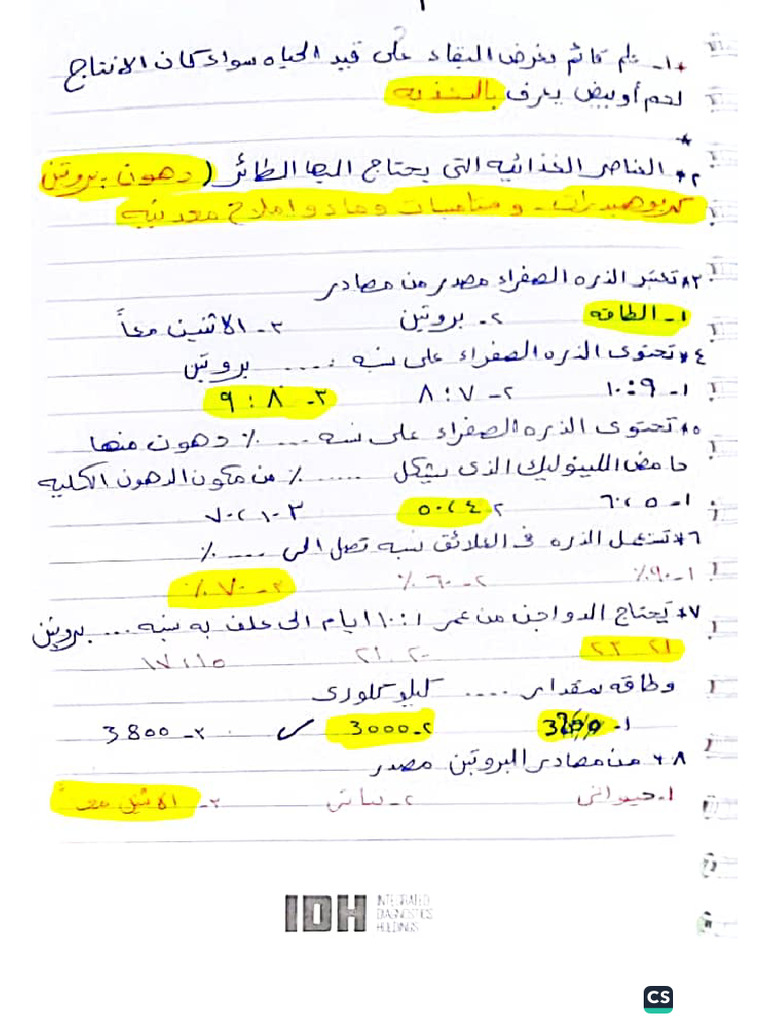 ١- علم قائم بغرض البقاء على قيد الحياه سواء كان الانتاج
لحم أو بيض يعرف بالتغذيه
٢* العناصر الغذائيه التى يحتاج اليها الطائر (دهون - بروتين
كربوهيدرات - وفيتامينات وماء واملاح معدنيه
٣* تعتبر الذره الصفراء مصدر من مصادر
١- الطاقه ٢- بروتين ٣- الاثنين معاً
٤* تحتوى الذره الصفراء على نسبه ..... بروتين
١- ٩:١٠ ٢- ٧:٨ ٣- ٨:٩
٥* تحتوى الذره الصفراء على نسبه .... ٪ دهون منها
حامض اللينوليك الذى يشكل ...... ٪ من مكون الدهون الكليه
١- ٥،٦٠ ٢- ٤،٥٠ ٣- ١٠،٧٠
٦* تستعمل الذره فى العلائق نسبه تصل الى .... ٪
١- ٩٠٪ ٢- ٦٠٪ ٣- ٧٠٪
٧* يحتاج الدواجن من عمر ١:١٠ ايام الى علف به نسبه .... بروتين
٢١ - ٢٣ ٢٠ - ٢١ ١٥، ١٧
وطاقه بمقدار .... كيلو كلورى
١- ٢- 3000 ✓ ٣- 3800
٨* من مصادر البروتين مصدر
١- حيوانى ٢- نباتى ٣- الاثنين معاً
IDH INTEGRATED
DIAGNOSTICS
HOLDINGS
CS